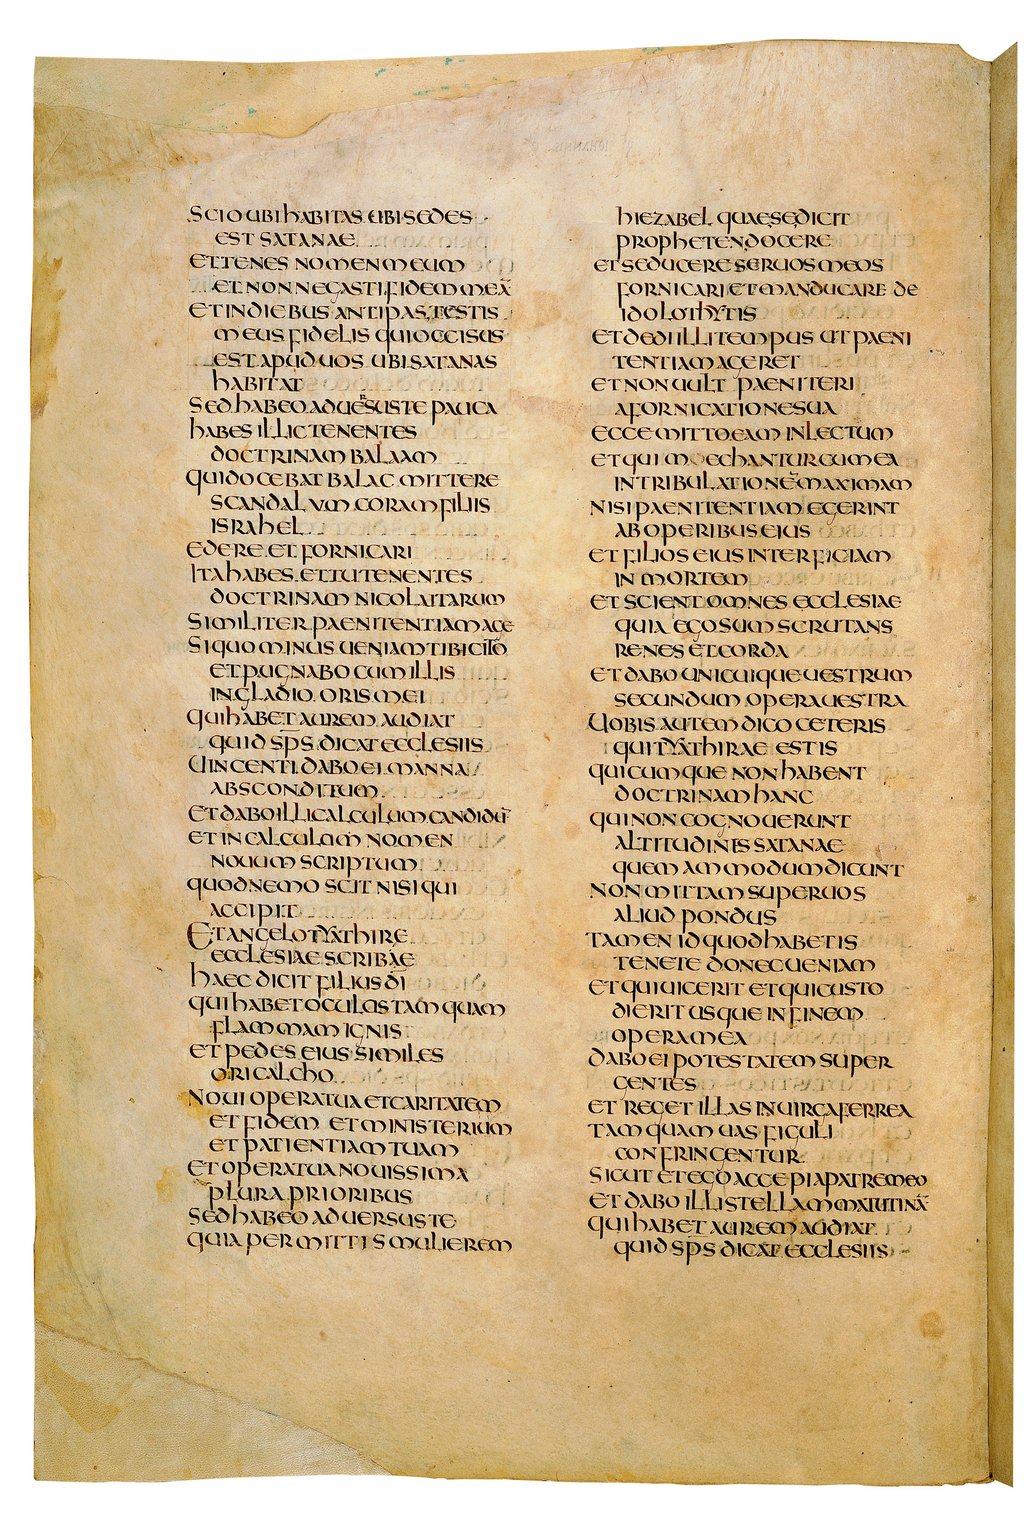 SCIO UBI HABITAS UBI SEDES
EST SATANAE
ET TENES NOMEN MEUM
ET NON NEGASTI FIDEM MEĀ
ET IN DIEBUS ANTIPAS TESTIS
MEUS FIDELIS QUI OCCISUS
EST APUD UOS UBI SATANAS
HABITAT
SED HABEO ADUERSUS TE PAUCA
HABES ILLIC TENENTES
DOCTRINAM BALAAM
QUI DOCEBAT BALAC MITTERE
SCANDALUM CORAM FILIIS
ISRAHEL
EDERE ET FORNICARI
ITA HABES ET TU TENENTES
DOCTRINAM NICOLAITARUM
SIMILITER PAENITENTIAM AGE
SI QUO MINUS UENIAM TIBI CITO
ET PUGNABO CUM ILLIS
IN GLADIO ORIS MEI
QUI HABET AUREM AUDIAT
QUID SP̄S DICAT ECCLESIIS
UINCENTI DABO EI MANNA
ABSCONDITUM
ET DABO ILLI CALCULUM CANDIDŪ
ET IN CALCULUM NOMEN
NOUUM SCRIPTUM
QUOD NEMO SCIT NISI QUI
ACCIPIT
ET ANGELO THYATHIRE
ECCLESIAE SCRIBAE
HAEC DICIT FILIUS D̄I
QUI HABET OCULOS TAMQUAM
FLAMMAM IGNIS
ET PEDES EIUS SIMILES
ORICALCHO
NOUI OPERA TUA ET CARITATEM
ET FIDEM ET MINISTERIUM
ET PATIENTIAM TUAM
ET OPERA TUA NOUISSIMA
PLURA PRIORIBUS
SED HABEO ADUERSUS TE
QUIA PERMITTIS MULIEREM
HIEZABEL QUAE SE DICIT
PROPHETEN DOCERE
ET SEDUCERE SERUOS MEOS
FORNICARI ET MANDUCARE DE
IDOLOTHYTIS
ET DEDI ILLI TEMPUS UT PAENI
TENTIAM AGERET
ET NON UULT PAENITERI
A FORNICATIONE SUA
ECCE MITTO EAM IN LECTUM
ET QUI MOECHANTUR CUM EA
IN TRIBULATIONĒ MAXIMAM
NISI PAENITENTIAM EGERINT
AB OPERIBUS EIUS
ET FILIOS EIUS INTERFICIAM
IN MORTEM
ET SCIENT OMNES ECCLESIAE
QUIA EGO SUM SCRUTANS
RENES ET CORDA
ET DABO UNICUIQUE UESTRUM
SECUNDUM OPERA UESTRA
UOBIS AUTEM DICO CETERIS
QUI THYATHIRAE ESTIS
QUICUMQUE NON HABENT
DOCTRINAM HANC
QUI NON COGNOUERUNT
ALTITUDINES SATANAE
QUEMAMMODUM DICUNT
NON MITTAM SUPER UOS
ALIUD PONDUS
TAMEN ID QUOD HABETIS
TENETE DONEC UENIAM
ET QUI UICERIT ET QUI CUSTO
DIERIT USQUE IN FINEM
OPERA MEA
DABO EI POTESTATEM SUPER
GENTES
ET REGET ILLAS IN UIRGA FERREA
TAMQUAM UAS FIGULI
CONFRINGENTUR
SICUT ET EGO ACCEPI A PATRE MEO
ET DABO ILLI STELLAM MATUTINĀ
QUI HABET AUREM AUDIAT
QUID SP̄S DICAT ECCLESIIS